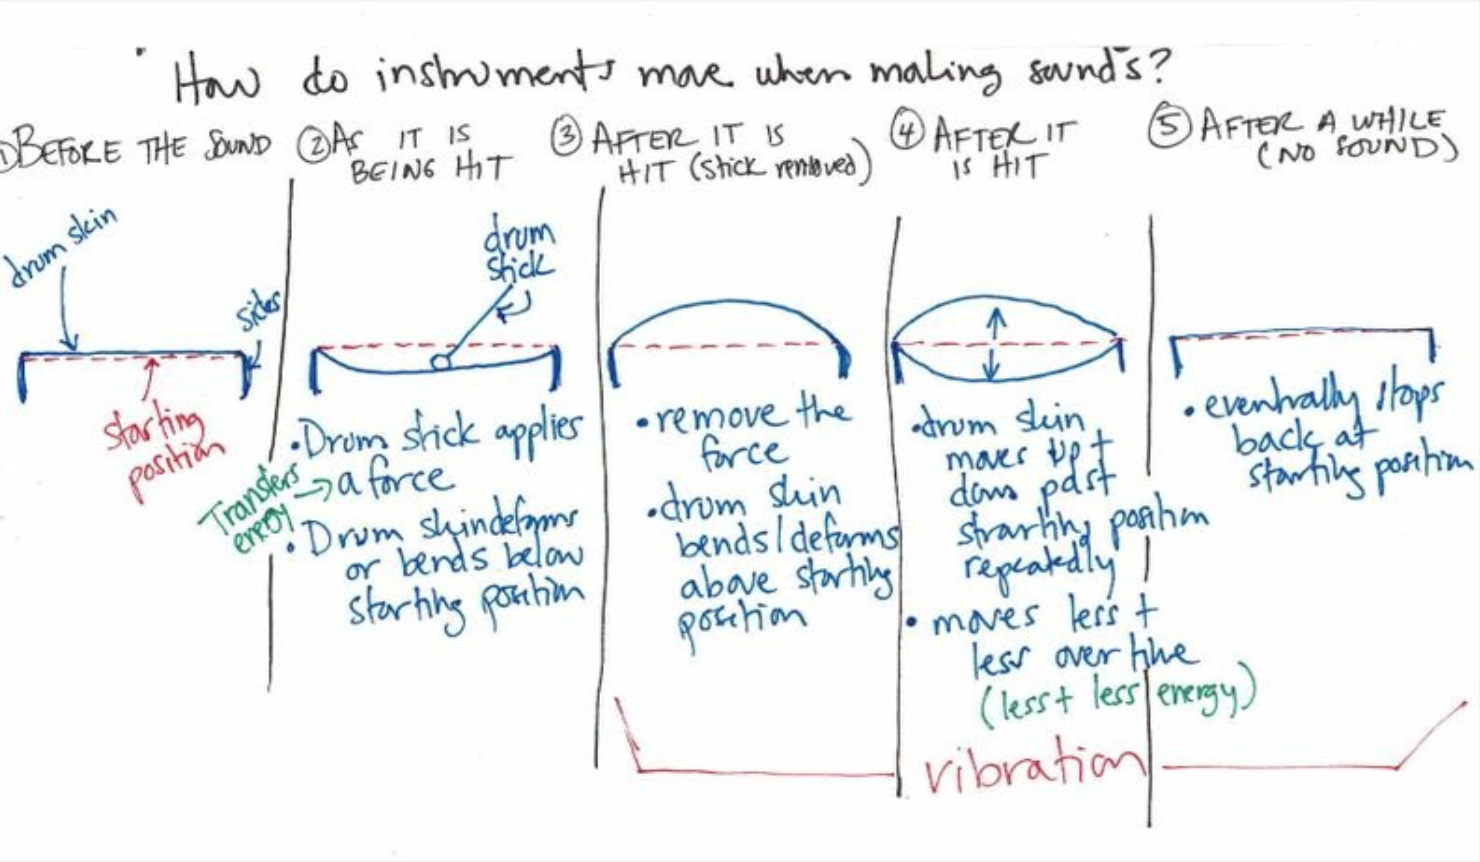 How do instruments move when making sounds?
① BEFORE THE SOUND
drum skin
sides
starting
position
② AS IT IS
BEING HIT
drum
stick
• Drum stick applies
a force
Transfers
energy
• Drum skin deforms
or bends below
starting position
③ AFTER IT IS
HIT (stick removed)
• remove the
force
• drum skin
bends/deforms
above starting
position
④ AFTER IT
IS HIT
• drum skin
moves up +
down past
strarting position
repeatedly
• moves less +
less over time
(less + less energy)
⑤ AFTER A WHILE
(NO SOUND)
• eventually stops
back at
starting position
vibration